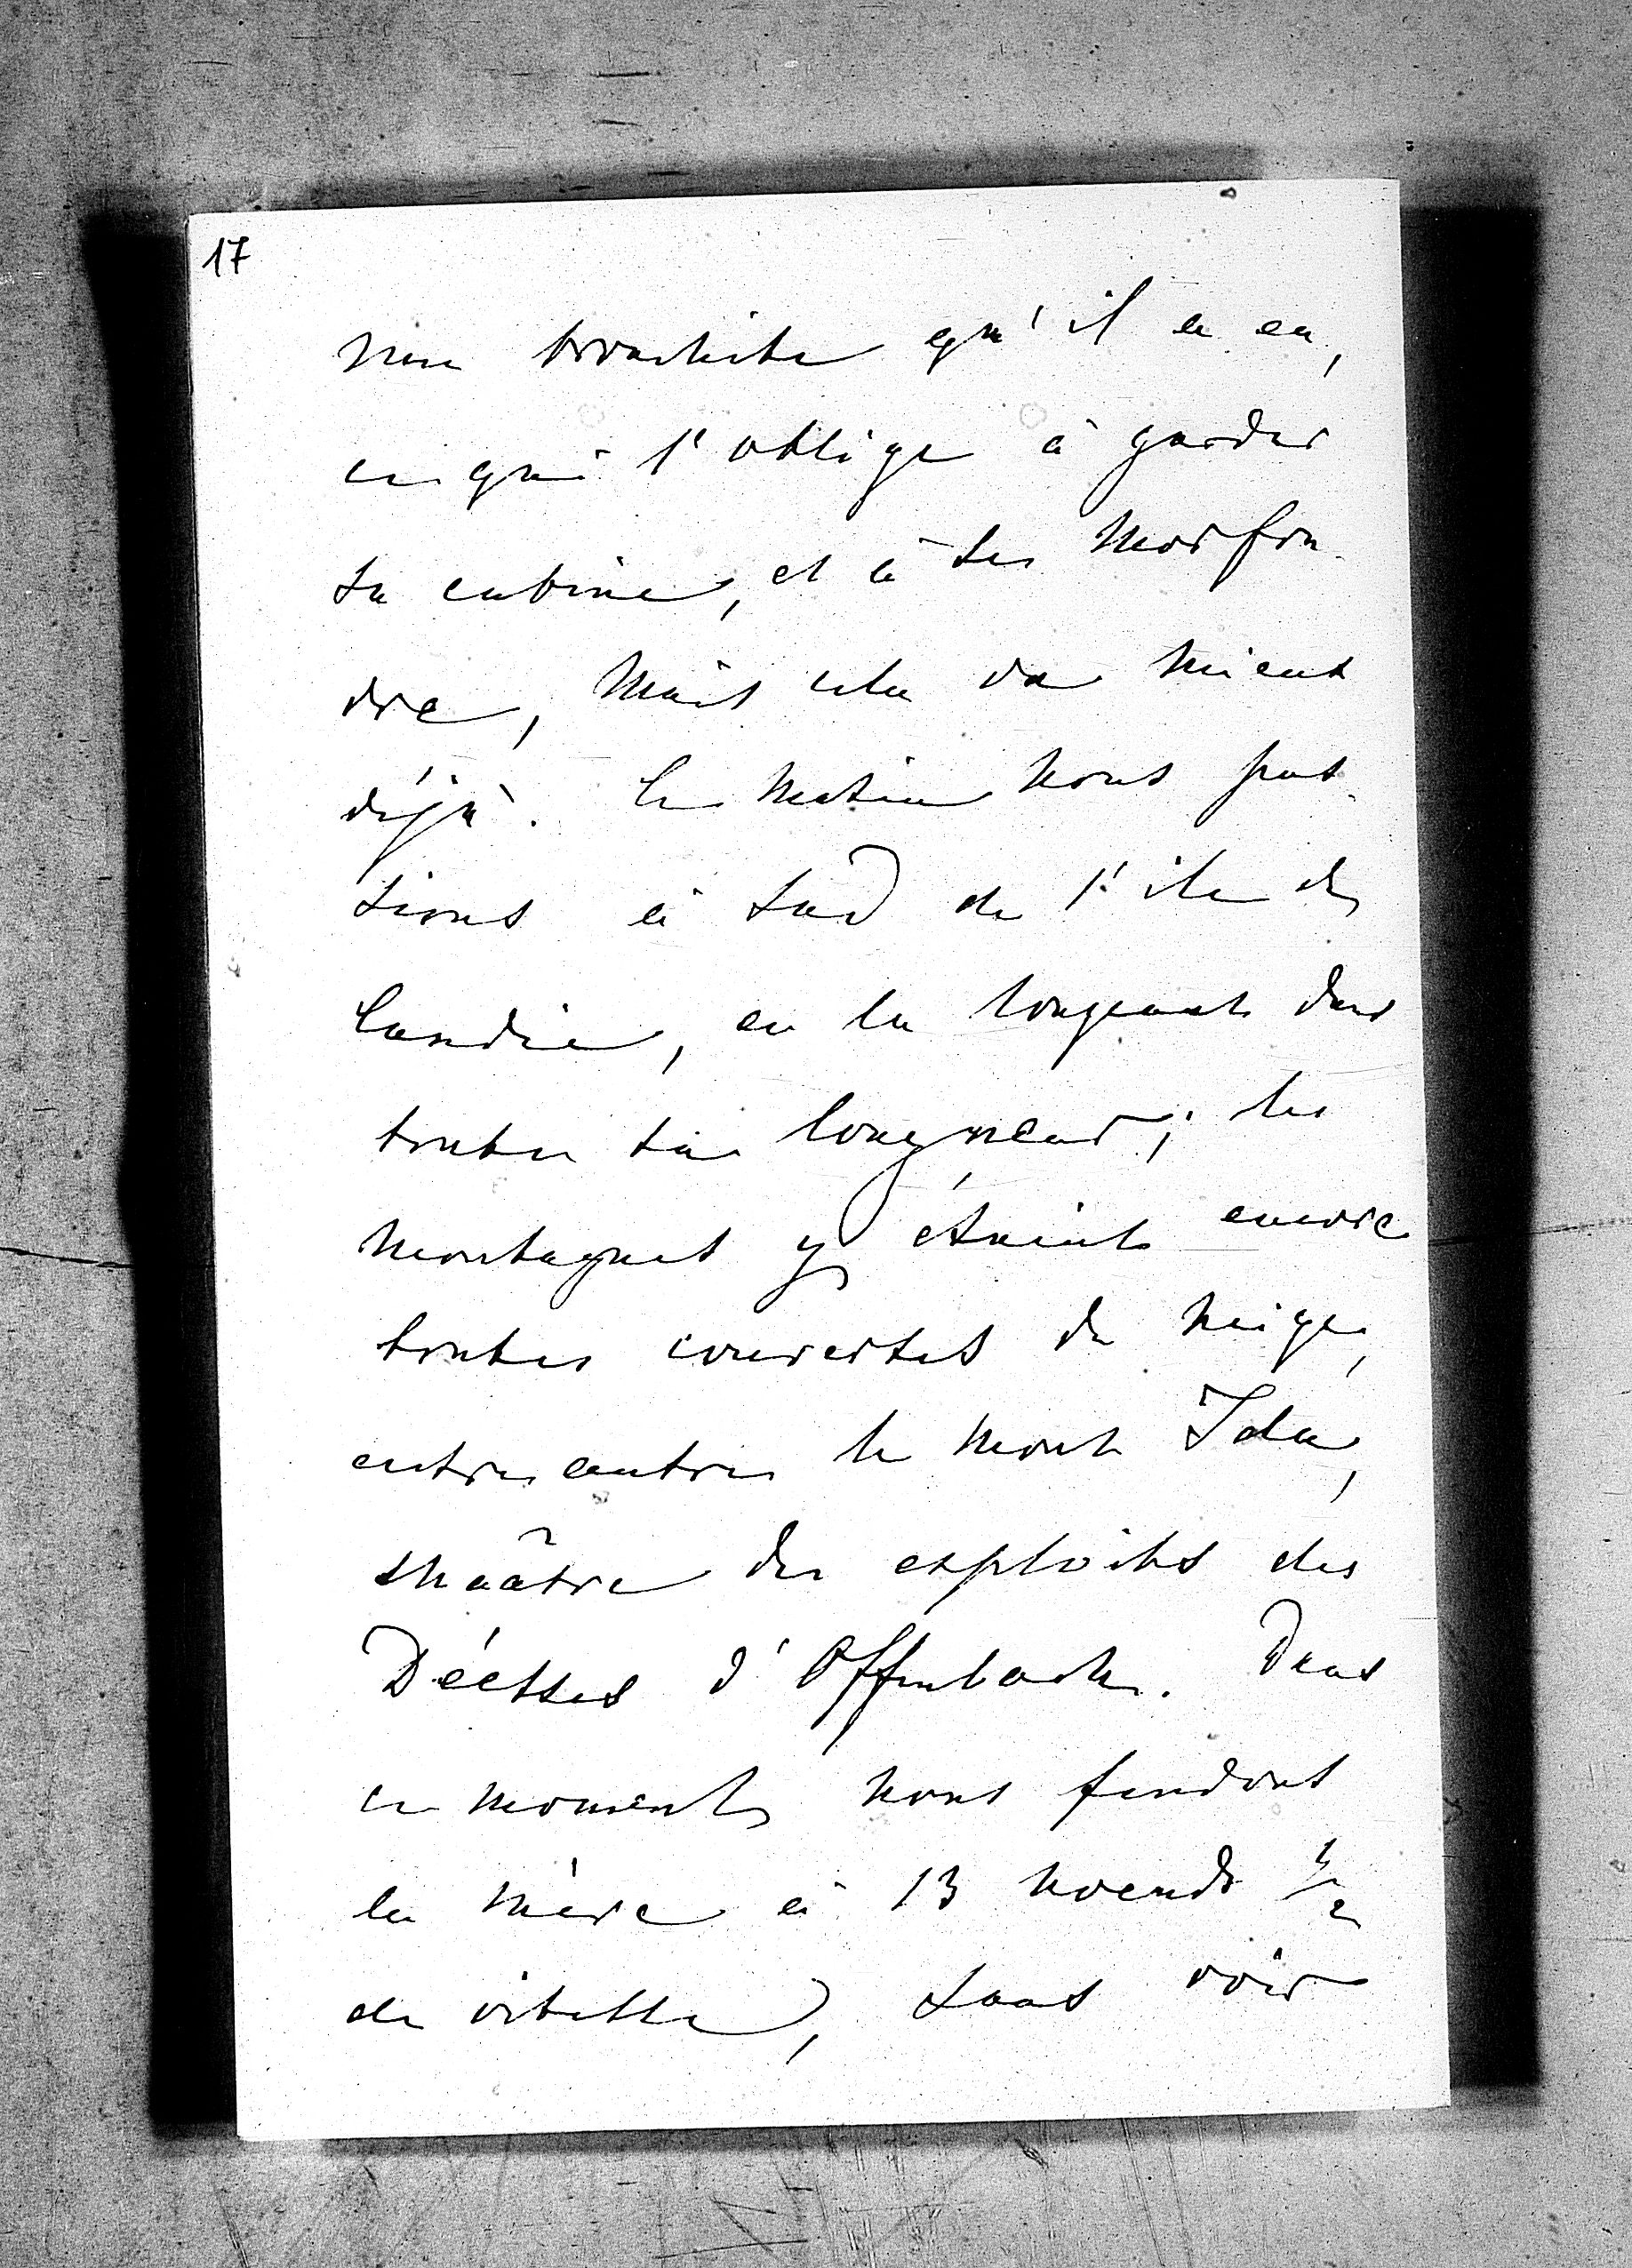 17
une bronchite qu'il a eu,
ce qui l'oblige à garder
sa cabine, et à se morfon-
dre, mais cela va mieux
déjà. Ce matin nous pas-
sions à Sud de l'ile de
Candie, en la longeant dans
toute sa longueur; les
montagnes y étaient encore
toutes couvertes de neige,
entre autres le mont Ida,
théâtre des exploits des
Déesses d'Offenbach. Dans
ce moment nous fendons
la mère à 13 noeuds 1/2
de vitesse, sans voir